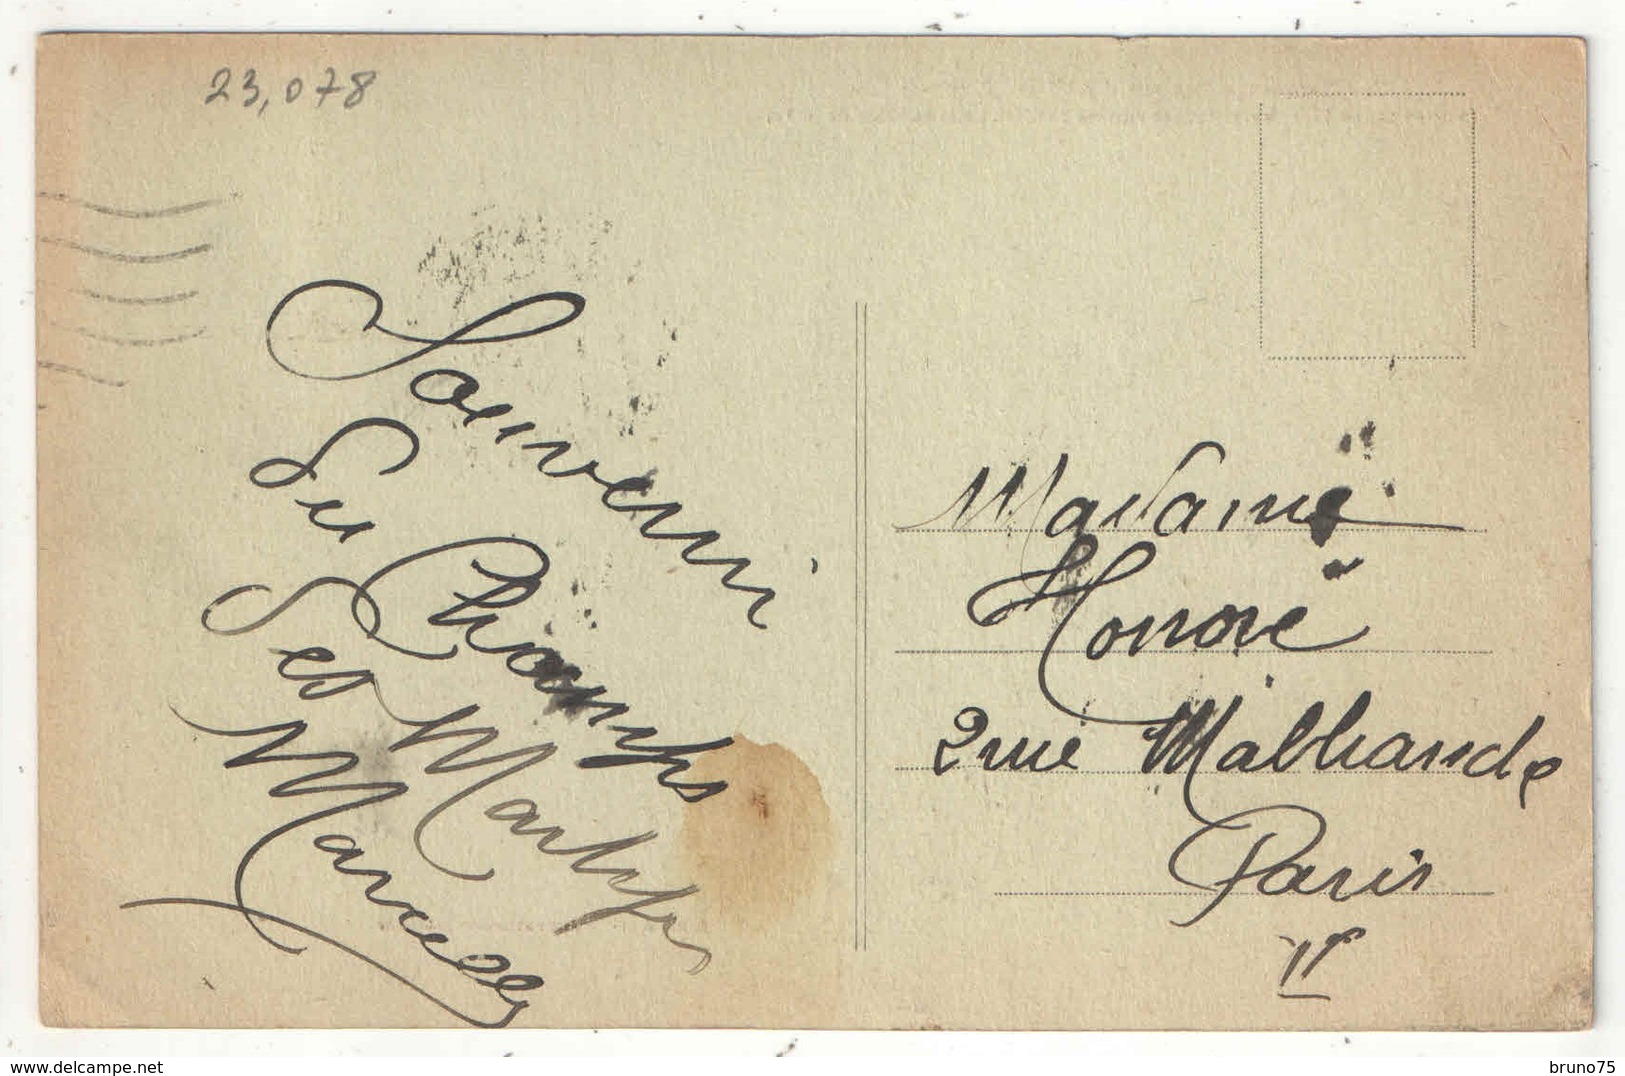 23,078
Souvenir
Du Champs
Des Martyrs
Madame
Honoré
2 rue Malhande
Paris
www.delcampe.net
bruno75